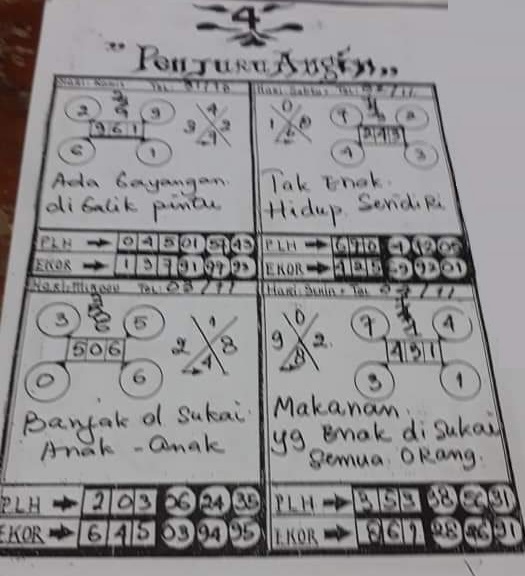 4
"Penjuru Angin"
Hari: Kamis Tgl: 31/10
2 9
961
6 1
4
3 2
Ada Bayangan
di balik pintu
PLH → 0 4 5 01 54 43
EKOR → 1 9 7 91 97 93
Hari: Sabtu
0
1
2
243
4 3
Tak Enak
Hidup Sendiri
PLH → 6 7 0
EKOR → 92 01
Hari: Minggu Tgl: 03/11
3 5
506
0 6
2 8
Banjak d Sukai
Anak - anak
PLH → 2 0 3 06 24 35
EKOR → 6 4 5 03 94 95
Hari: Senin
7 4
431
3 1
0
9 2
8
Makanan
yg Enak di Sukai
Semua Orang
PLH → 3 5 3 38 56 31
EKOR → 8 6 2 28 46 91